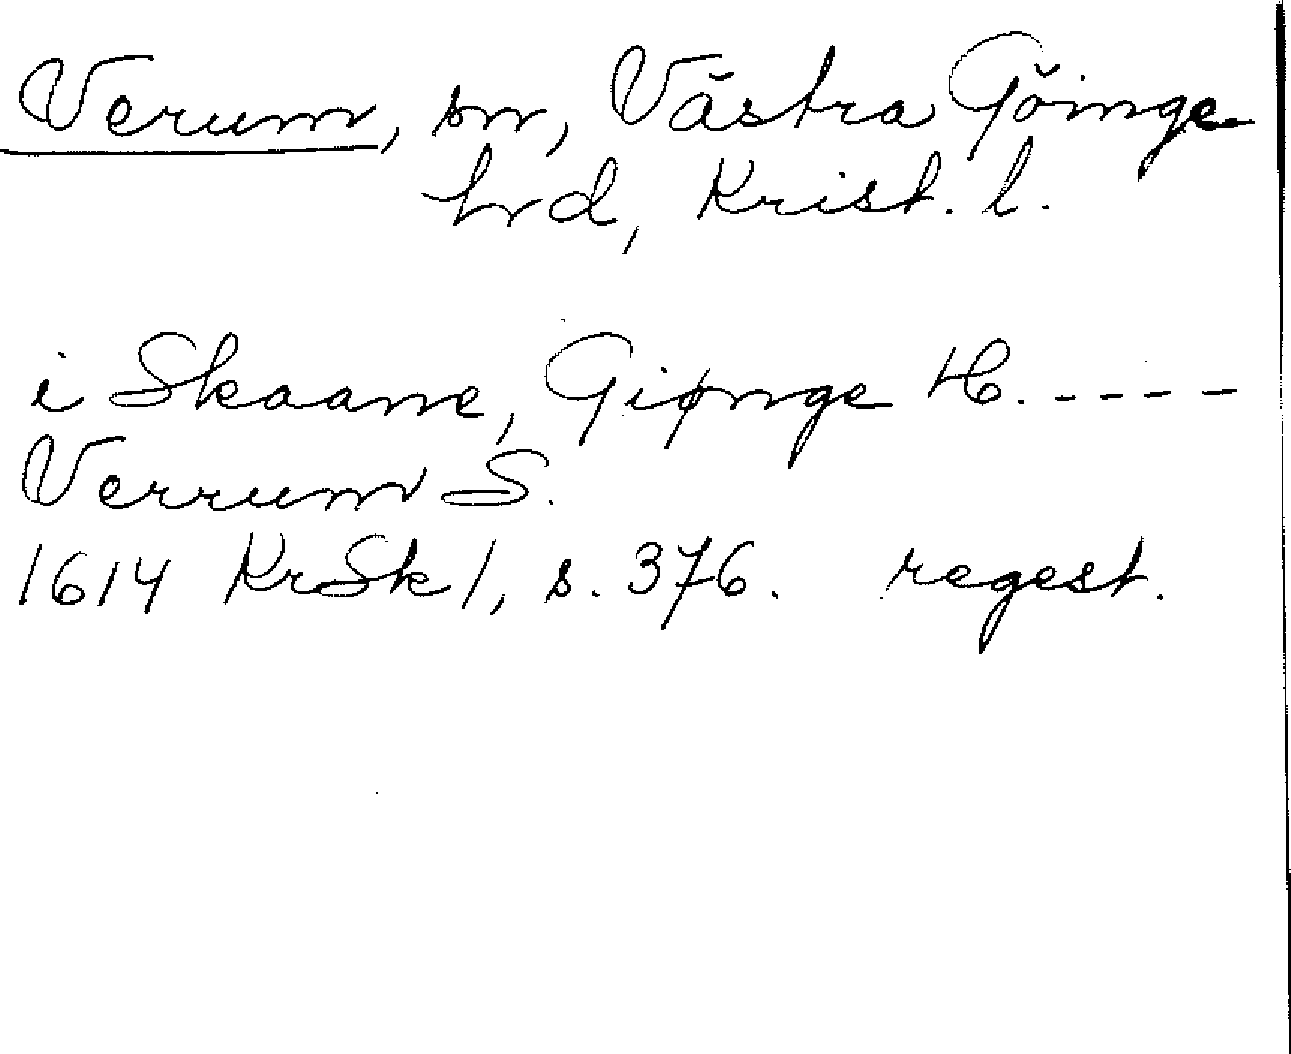 Verum, sn, Västra Göinge
hrd, Krist. l.
i Skaane, Giønge H. - - - - -
Verrum S.
1614 KrSk 1, s. 376. regest.